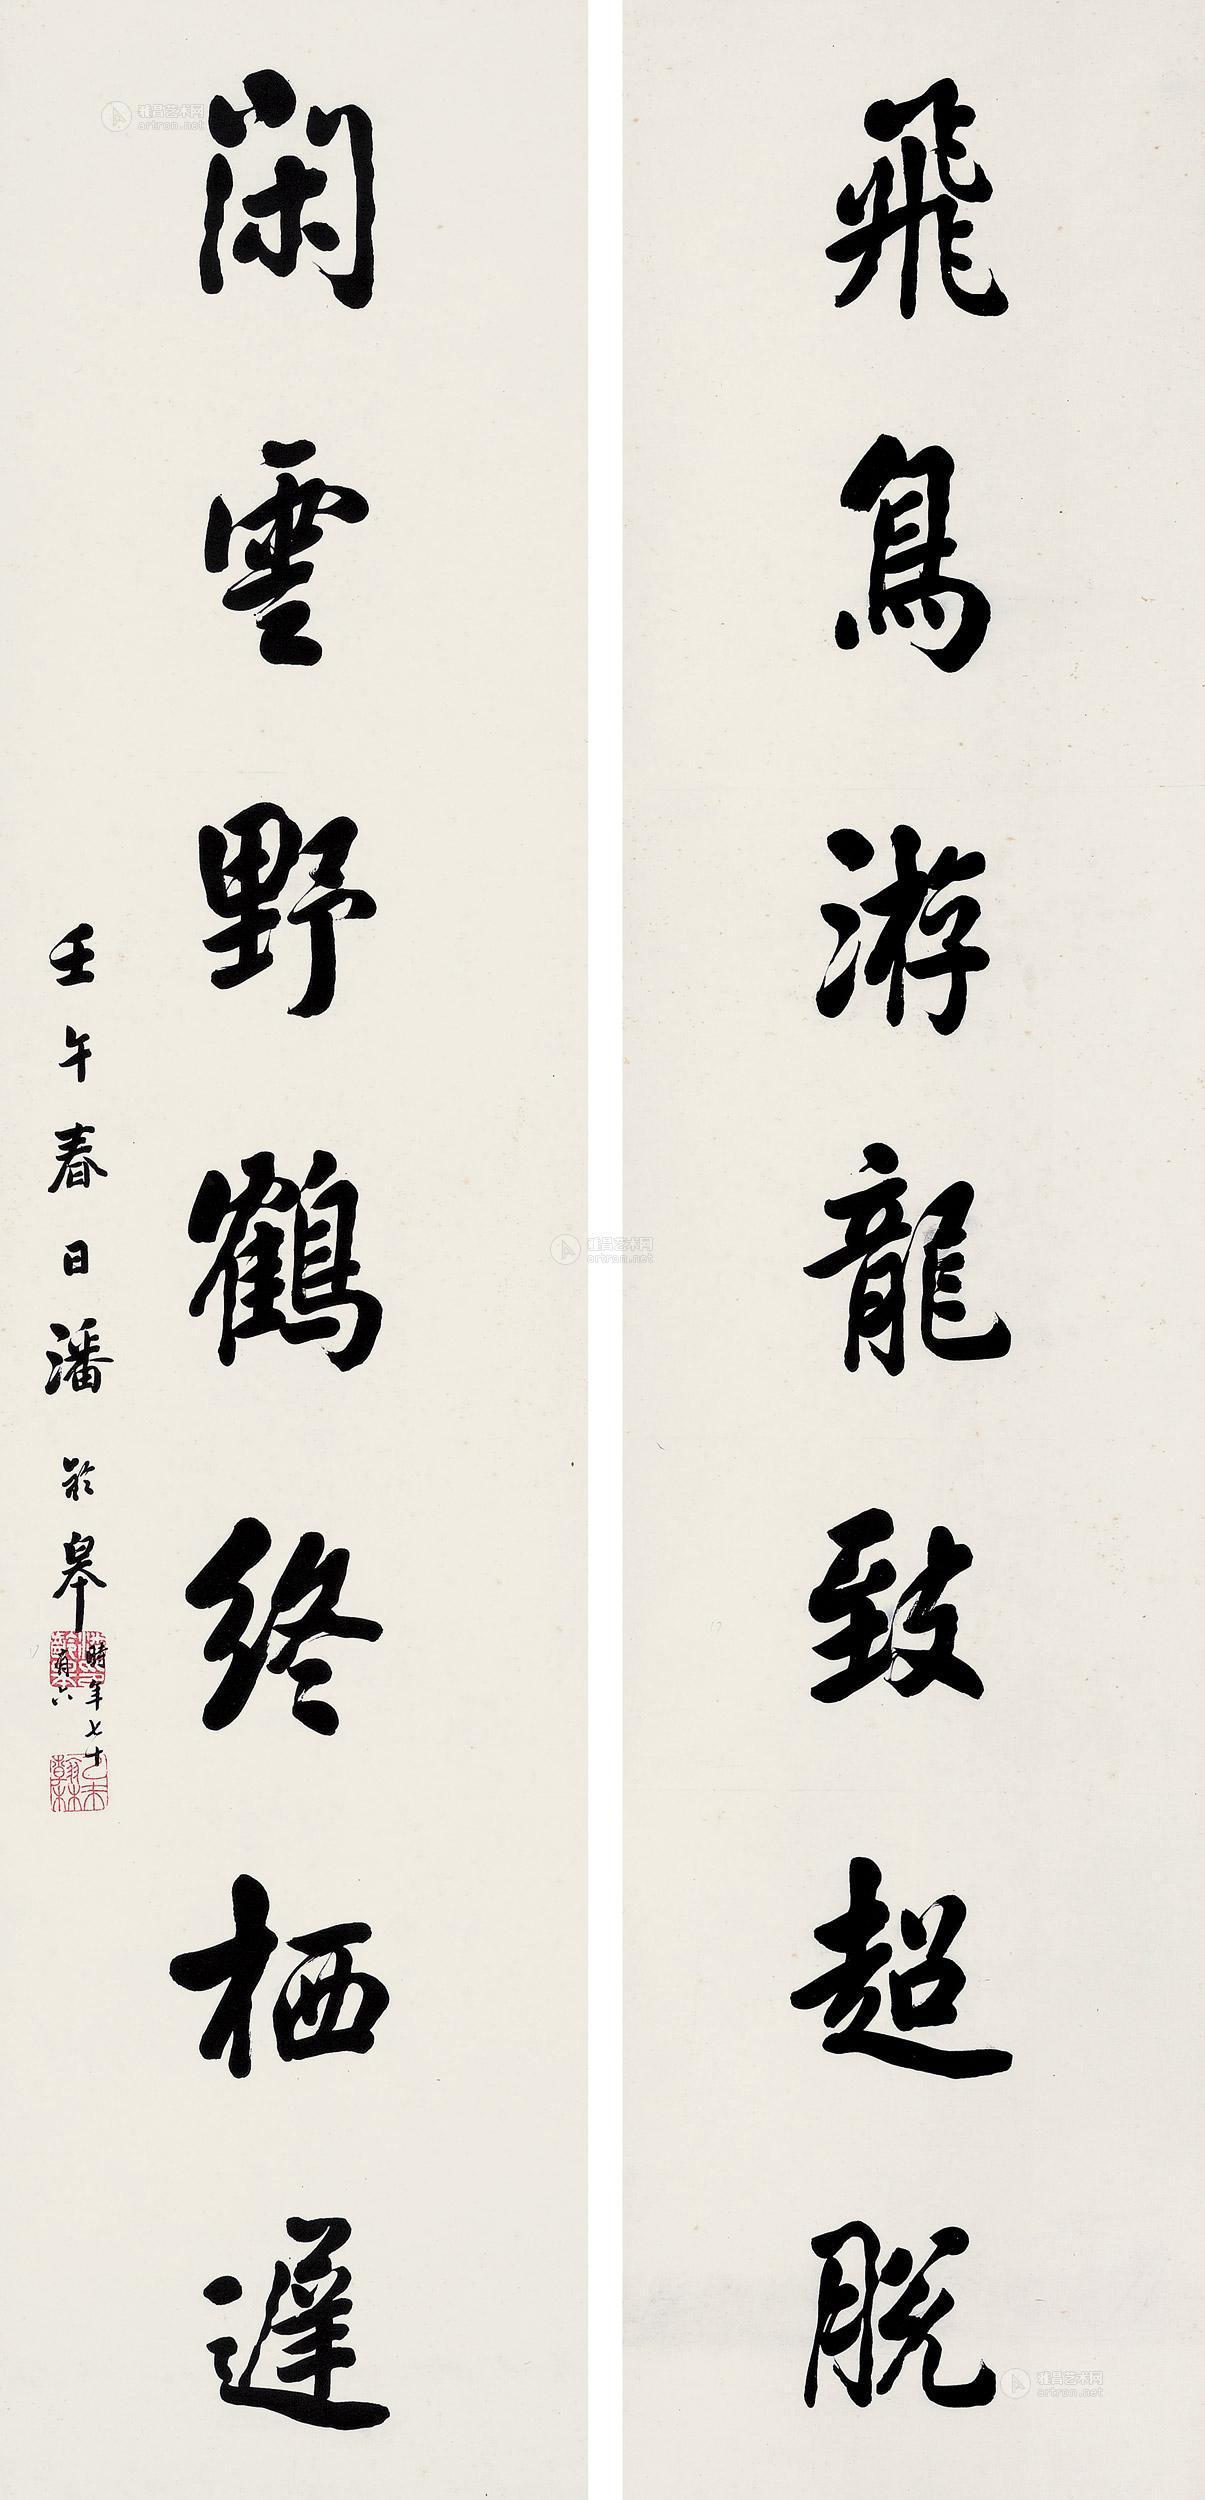 飛鳥游龍致超脫
閑雲野鶴終栖遲
壬午春日潘齡皋
時年七十
有六
雅昌艺术网
artron.net
雅昌艺术网
artron.net
雅昌艺术网
artron.net